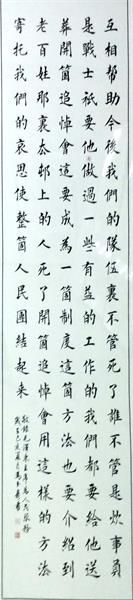 互相幫助今後我們的隊伍裏不管死了誰不管是炊事員
是戰士祇要他做過一些有益的工作的我們都要給他送
葬開箇追悼會這要成為一箇制度這箇方法也要介紹到
老百姓那裏去邨上的人死了開箇追悼會用這樣的方法
寄托我們的哀思使整箇人民團結起來
敬錄毛澤東主席為人民服務